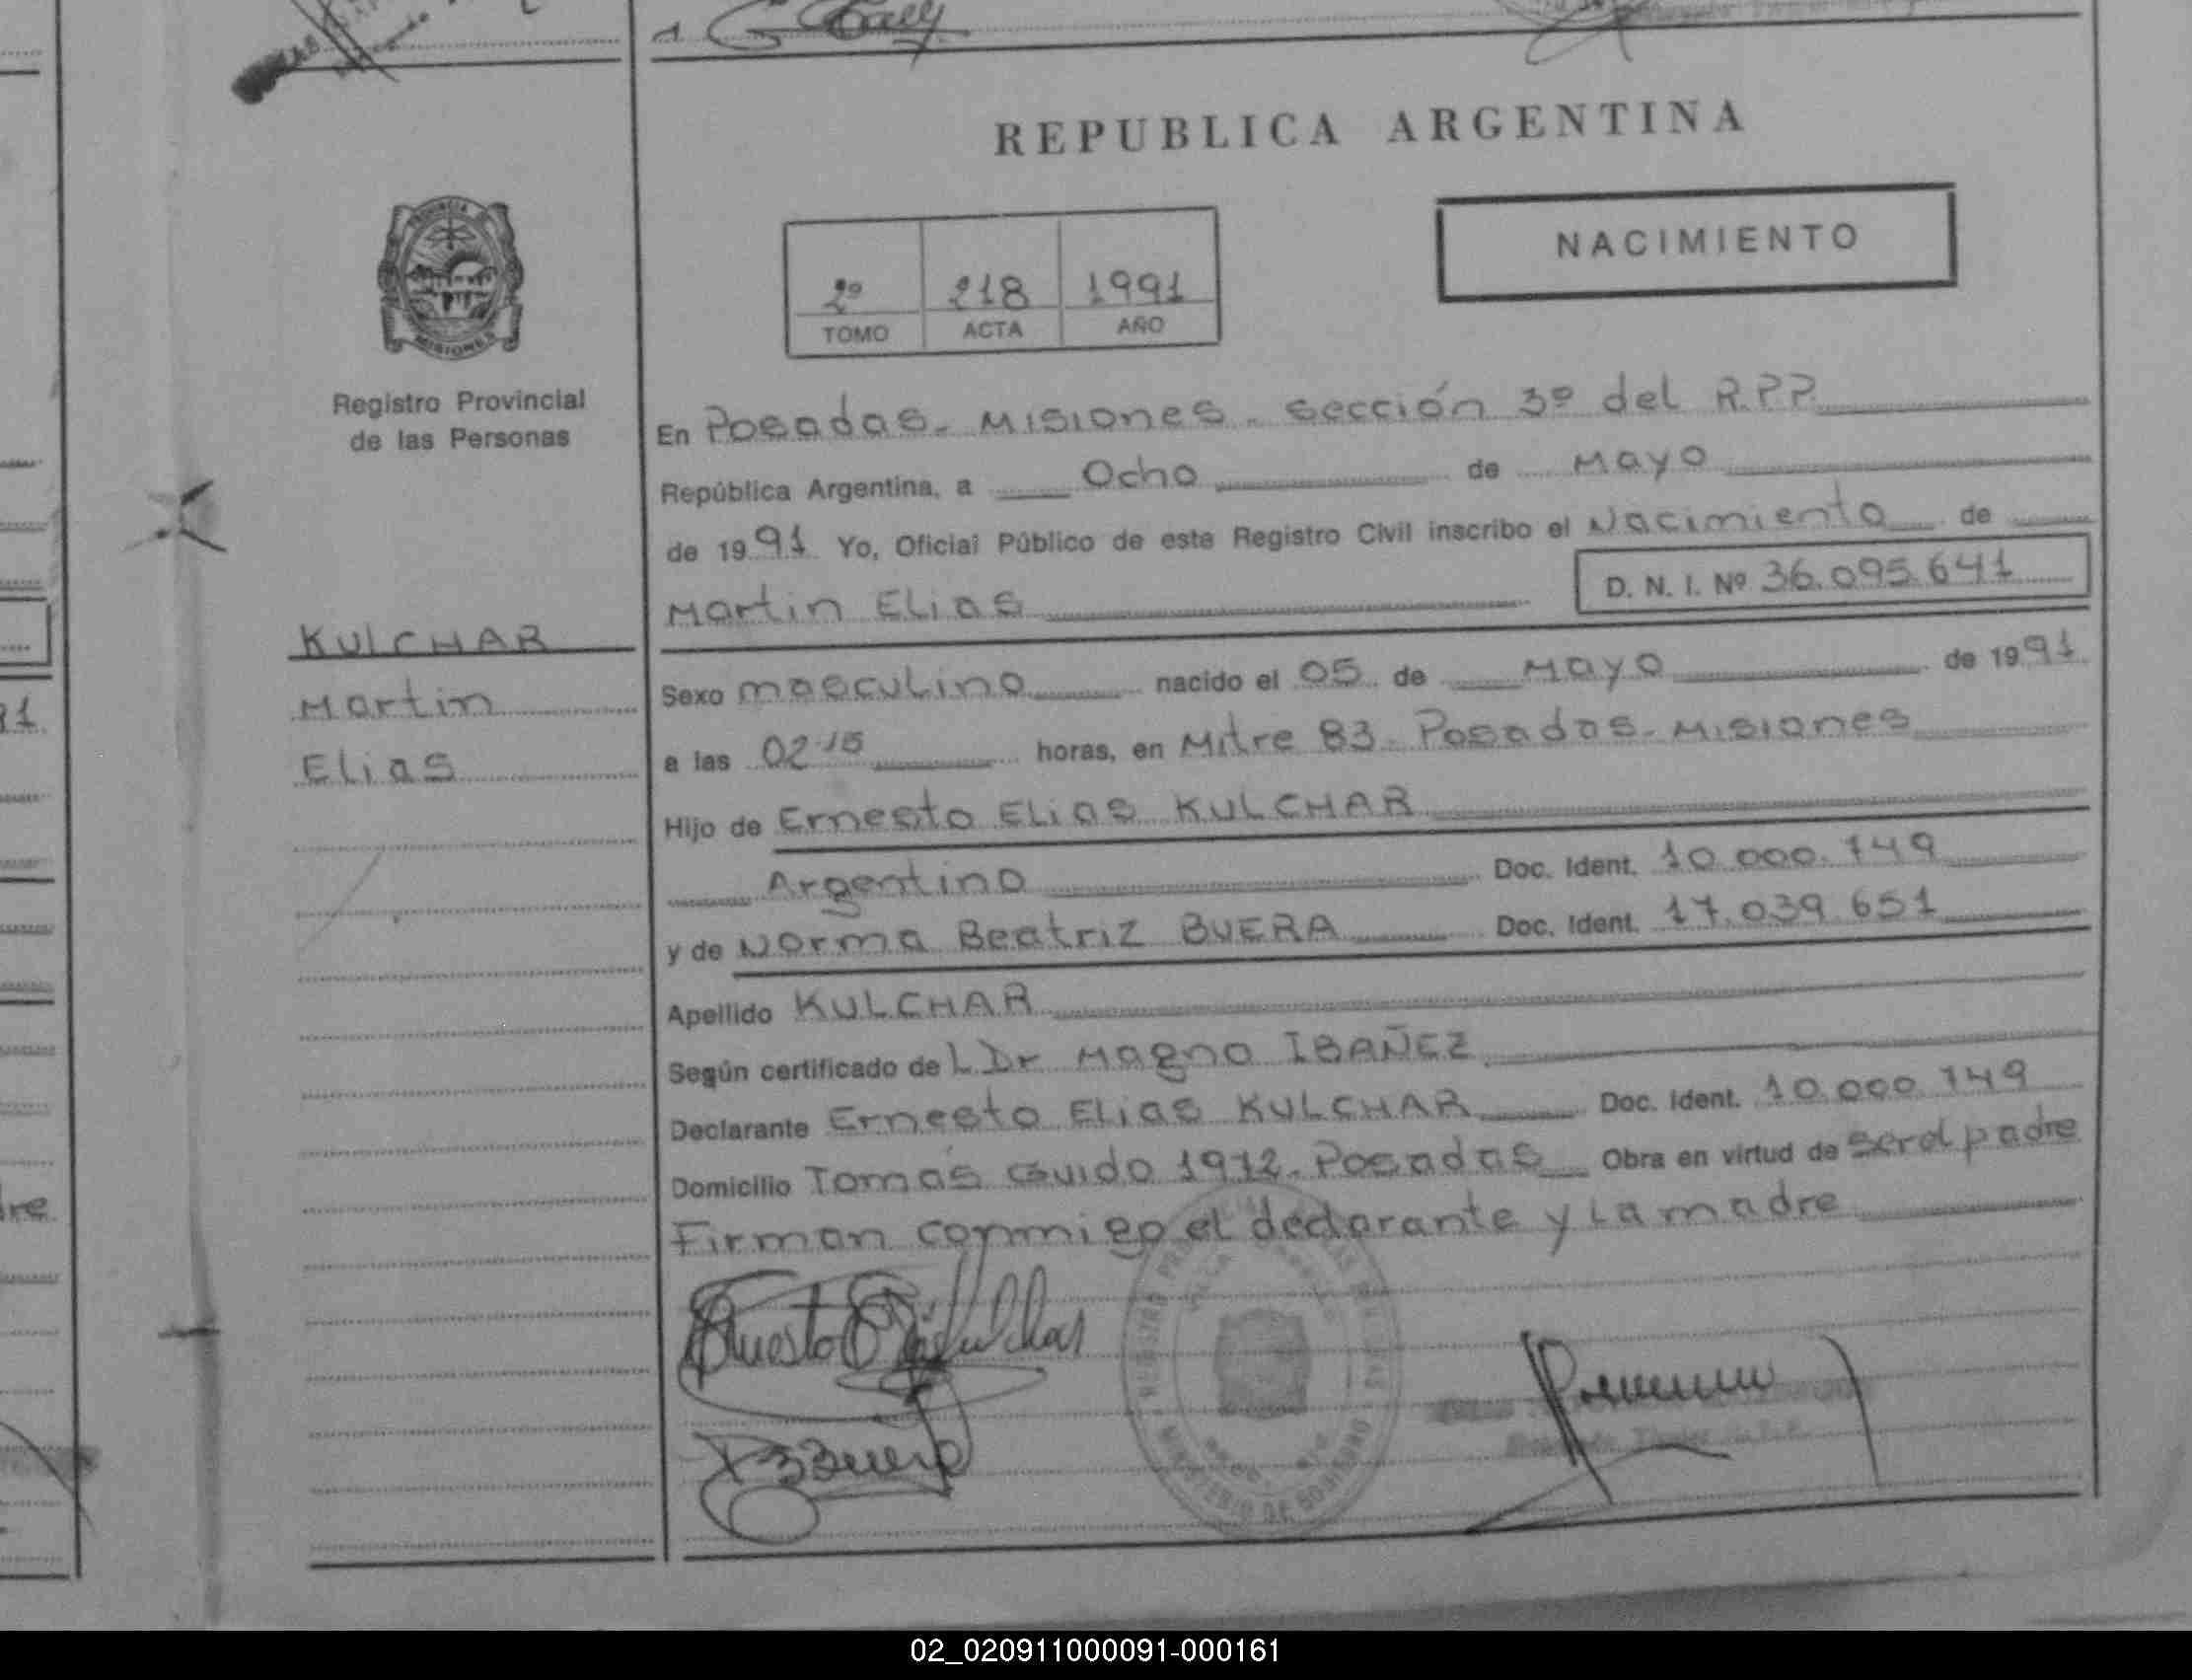 REPUBLICA ARGENTINA
NACIMIENTO
2º 218 1991
TOMO ACTA AÑO
PROVINCIA DE
MISIONES
Registro Provincial
de las Personas
KULCHAR
Martin
Elias
En Posadas - Misiones - sección 3º del R.P.P.
República Argentina, a Ocho de Mayo
de 1991 Yo, Oficial Público de este Registro Civil inscribo el Nacimiento de
Martin Elias D. N. I. Nº 36.095.641
Sexo masculino nacido el 05 de Mayo de 1991
a las 02.15 horas, en Mitre 83 - Posadas - Misiones
Hijo de Ernesto Elias KULCHAR
Argentino Doc. Ident. 10.000.749
y de Norma Beatriz BUERA Doc. Ident. 17.039.651
Apellido KULCHAR
Según certificado de L Dr Magno IBAÑEZ
Declarante Ernesto Elias KULCHAR Doc. Ident. 10.000.749
Domicilio Tomás Guido 1972 - Posadas Obra en virtud de ser el padre
Firman conmigo el declarante y la madre
Ernesto Elias Kulchar
Buera
MINISTERIO DE GOBIERNO
02_020911000091-000161